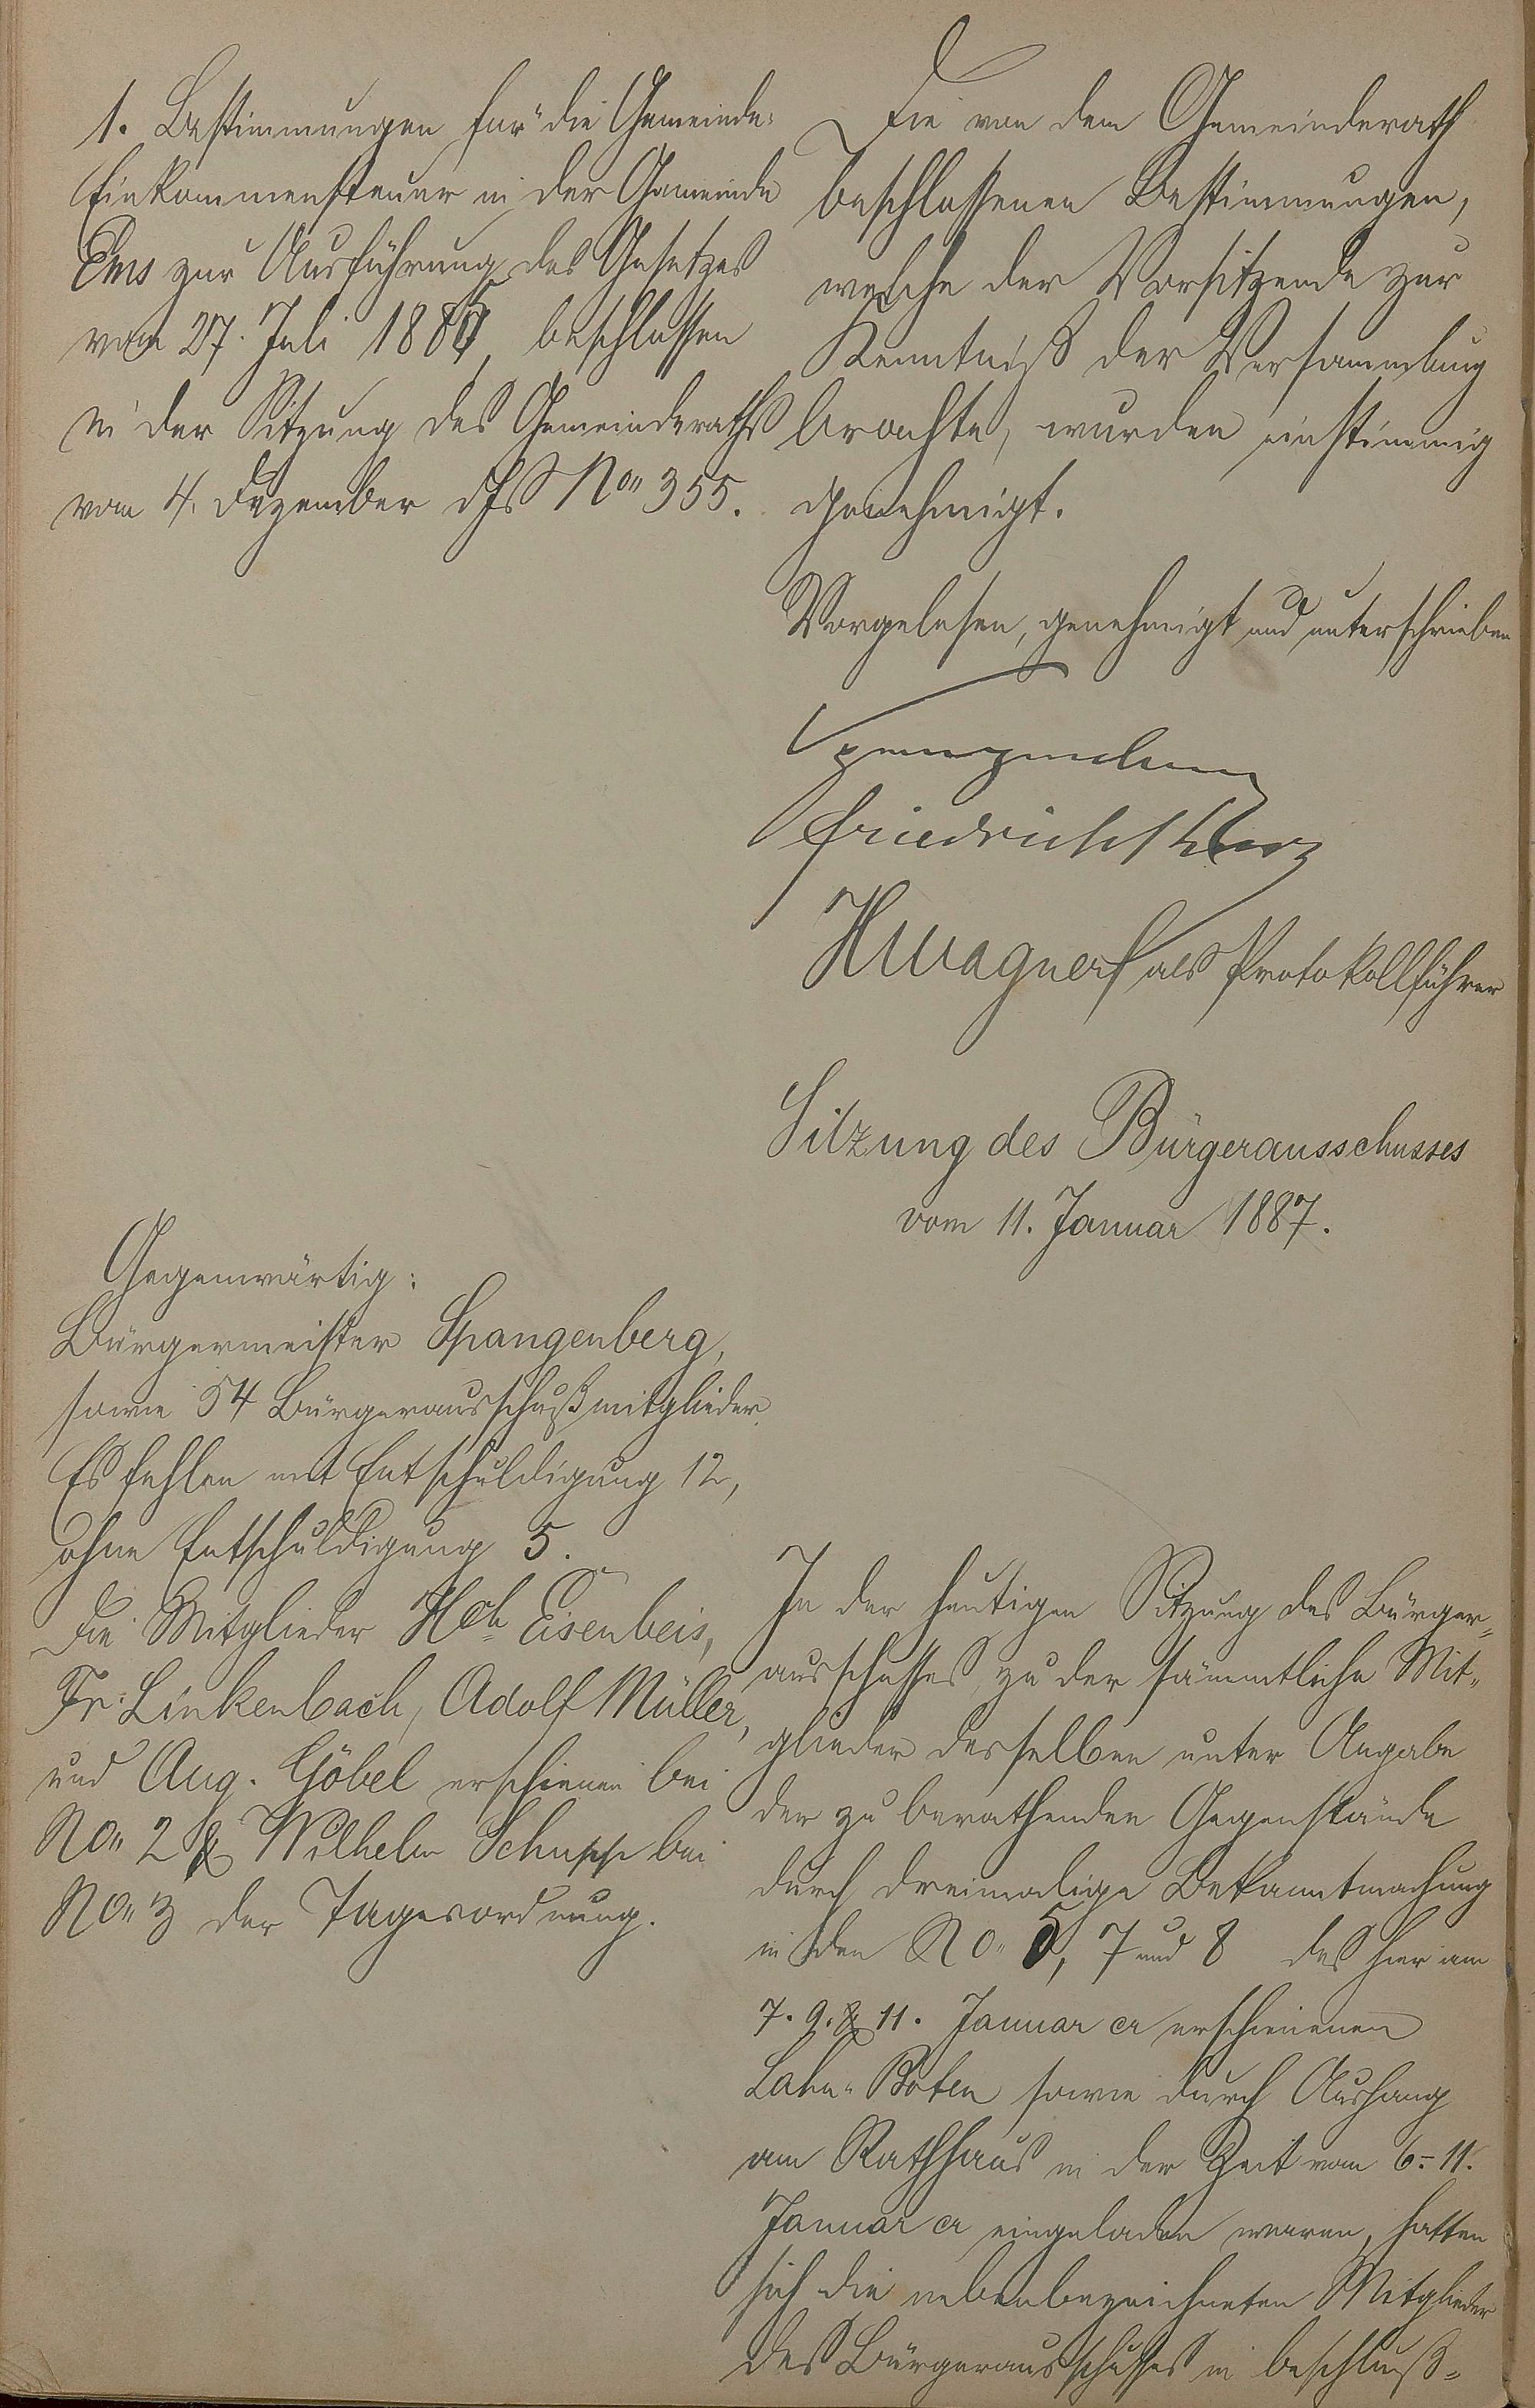 1. Bestimmungen für die Gemeinde-
Einkommensteuer in der Gemeinde
Ems zur Ausführung des Gesetzes
vom 27. Juli 1885, beschlossen
in der Sitzung des Gemeinderaths
vom 4. Dezember dJs No 355.
Die von dem Gemeinderath
beschlossenen Bestimmungen,
welche der Vorsitzende zur
Kenntniß der Versammlung
brachte, wurden einstimmig
genehmigt.
Vorgelesen, genehmigt und unterschrieben
Spangenberg
Friedrich
HWagner als Protokollführer
Sitzung des Bürgerausschusses
vom 11. Januar 1887.
Gegenwärtig:
Bürgermeister Spangenberg,
sowie 54 Bürgerausschußmitglieder.
Es fehlen mit Entschuldigung 12,
ohne Entschuldigung 5.
Die Mitglieder Hch Eisenbeis,
Fr. Linkenbach, Adolf Müller,
und Aug. Göbel erschienen bei
No 2 & Wilhelm Schupp bei
No 3 der Tagesordnung.
In der heutigen Sitzung des Bürger-
ausschusses, zu der sämmtliche Mit-
glieder desselben unter Angabe
der zu berathenden Gegenstände
durch dreimalige Bekanntmachung
in den No 5, 7 und 8 des hier am
7. 9. & 11. Januar cr erschienenen
Lahn-Boten sowie durch Aushang
am Rathhaus in der Zeit vom 6-11.
Januar cr eingeladen waren, hatten
sich die nebenbezeichneten Mitglieder
des Bürgerausschusses in beschluß-